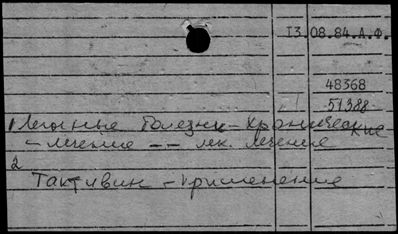 13.08.84.А.Ф.
48368
51388
1 Легочные болезни - хронические
- лечение -- лек. лечение
2
Тактивин - применение